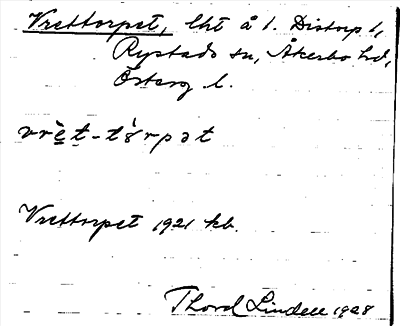 Vrettorpet, lht å 1. Distorp 1,
Rystads sn, Åkerbo hd,
Österg l.
vrè̤t-tòrpət
Vrettorpet 1921 kb.
Thord Lindell 1928